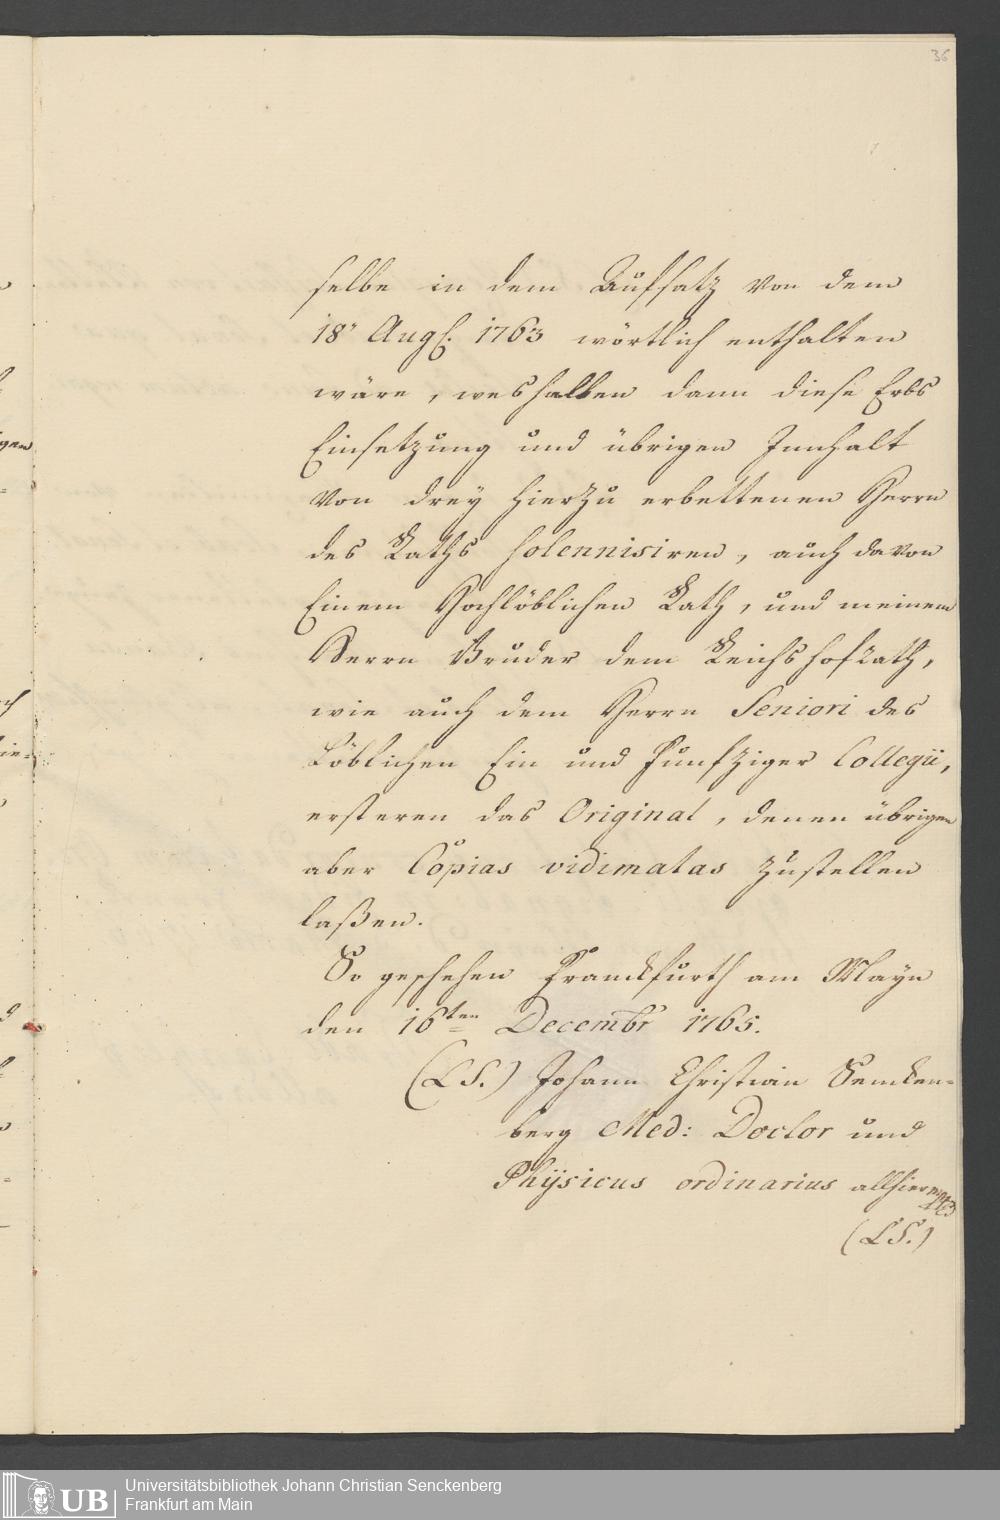 36
selbe in dem Aufsatz von dem
18' Augs. 1763 wörtlich enthalten
wäre, weshalben dann diese Erbs
Einsetzung und übrigen Innhalt
von drey hierzu erbettenen Herrn
des Raths solennisiren, auch davon
Einem Hochlöblichen Rath, und meinem
Herrn Bruder dem Reichshofrath,
wie auch dem Herrn Seniori des
Löblichen Ein und Funfziger Collegii,
ersteren das Original, denen übrigen
aber Copias vidimatas zustellen
laßen.
So geschehen Franckfurth am Mayn
den 16ten Decembr 1765.
(LS.) Johann Christian Sencken-
berg Med: Doctor und
Physicus ordinarius allhier
(LS.)
Universitätsbibliothek Johann Christian Senckenberg
Frankfurt am Main
UB